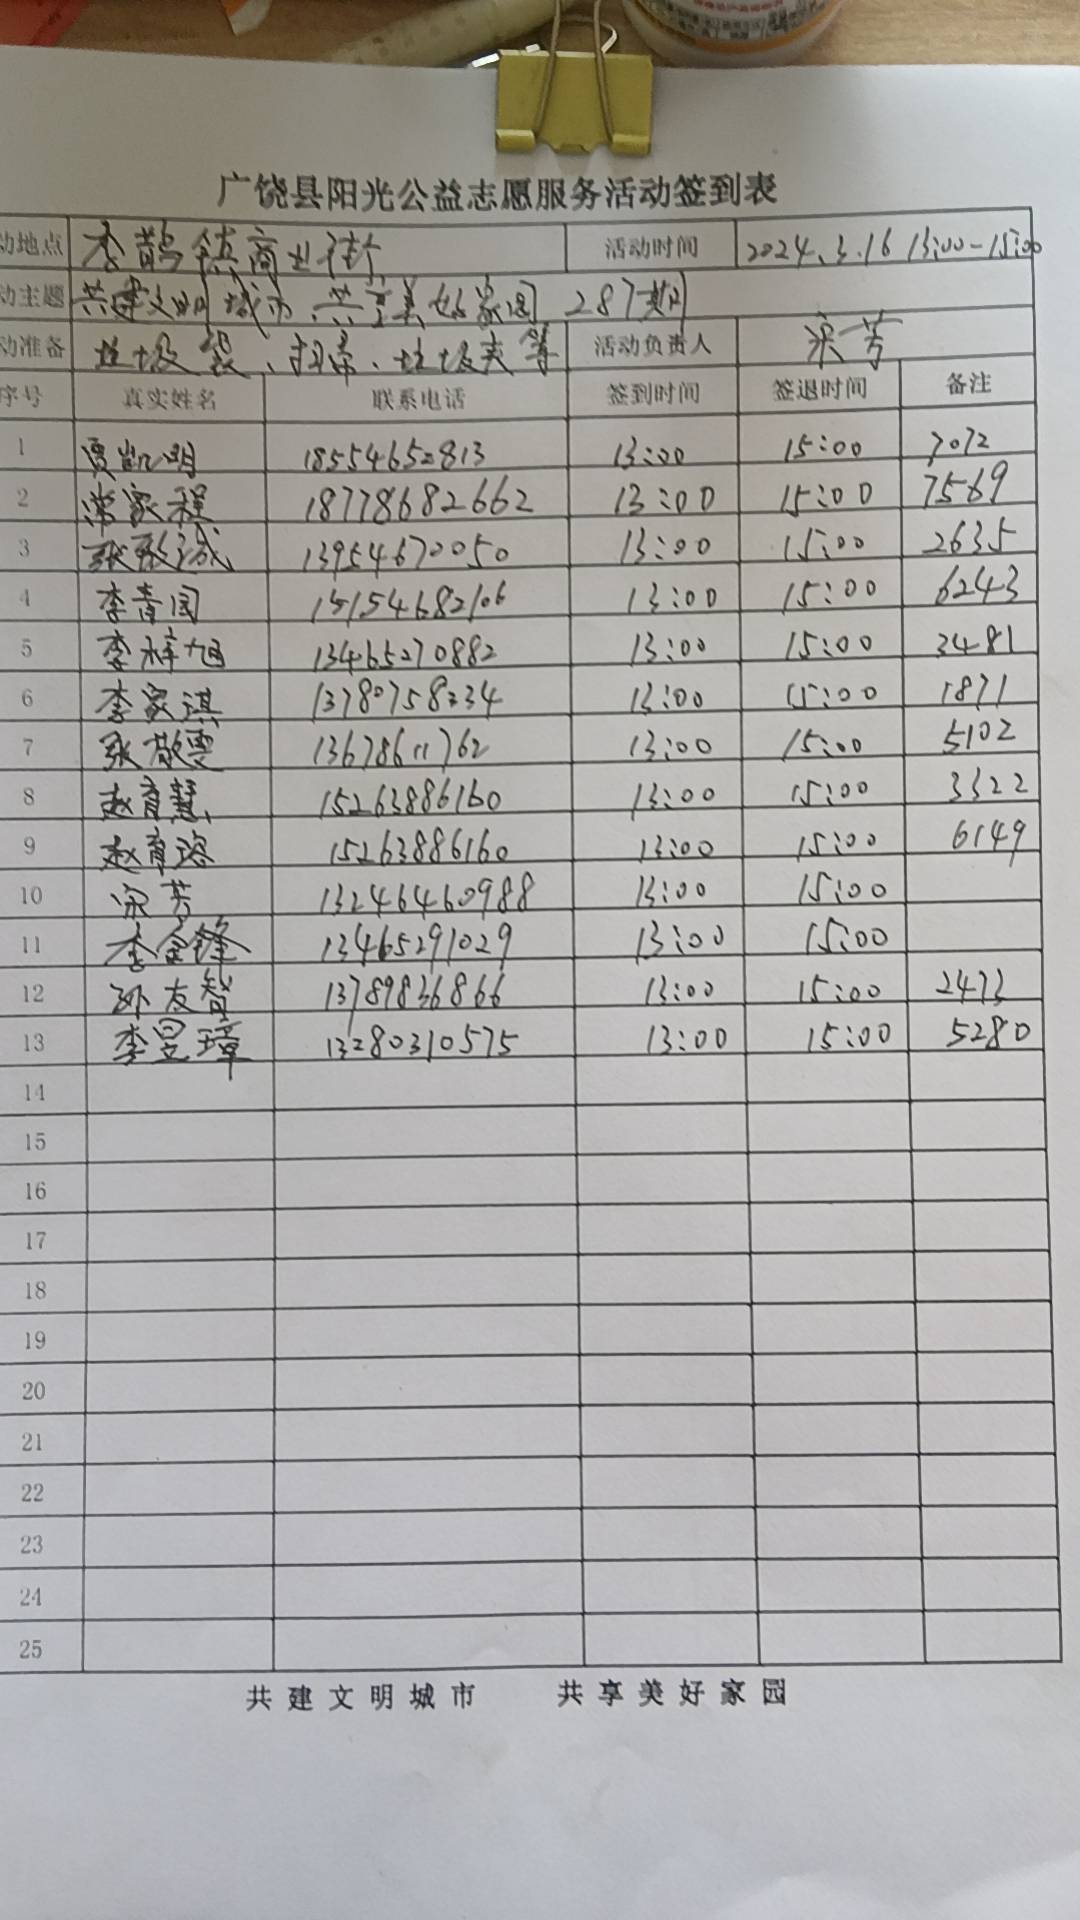 广饶县阳光公益志愿服务活动签到表
动地点 李鹊镇商业街 活动时间 2024.3.16 13:00-15:00
动主题 共建文明城市、共享美好家园 287期
动准备 垃圾袋、扫帚、垃圾夹等 活动负责人 宋芳
序号 真实姓名 联系电话 签到时间 签退时间 备注
1 贾凯明 18554652813 13:00 15:00 7072
2 常家程 18778682662 13:00 15:00 7569
3 张敬诚 13954670050 13:00 15:00 2635
4 李青园 15154682106 13:00 15:00 6243
5 李梓旭 13465270882 13:00 15:00 3481
6 李家淇 13780758334 13:00 15:00 1871
7 张敬雯 13678611762 13:00 15:00 5102
8 赵育慧 15263886160 13:00 15:00 3322
9 赵育珞 15263886160 13:00 15:00 6149
10 宋芳 13246460988 13:00 15:00
11 李金锋 13465291029 13:00 15:00
12 孙友智 13789836866 13:00 15:00 2473
13 李昱璋 13280310575 13:00 15:00 5280
14
15
16
17
18
19
20
21
22
23
24
25
共建文明城市 共享美好家园